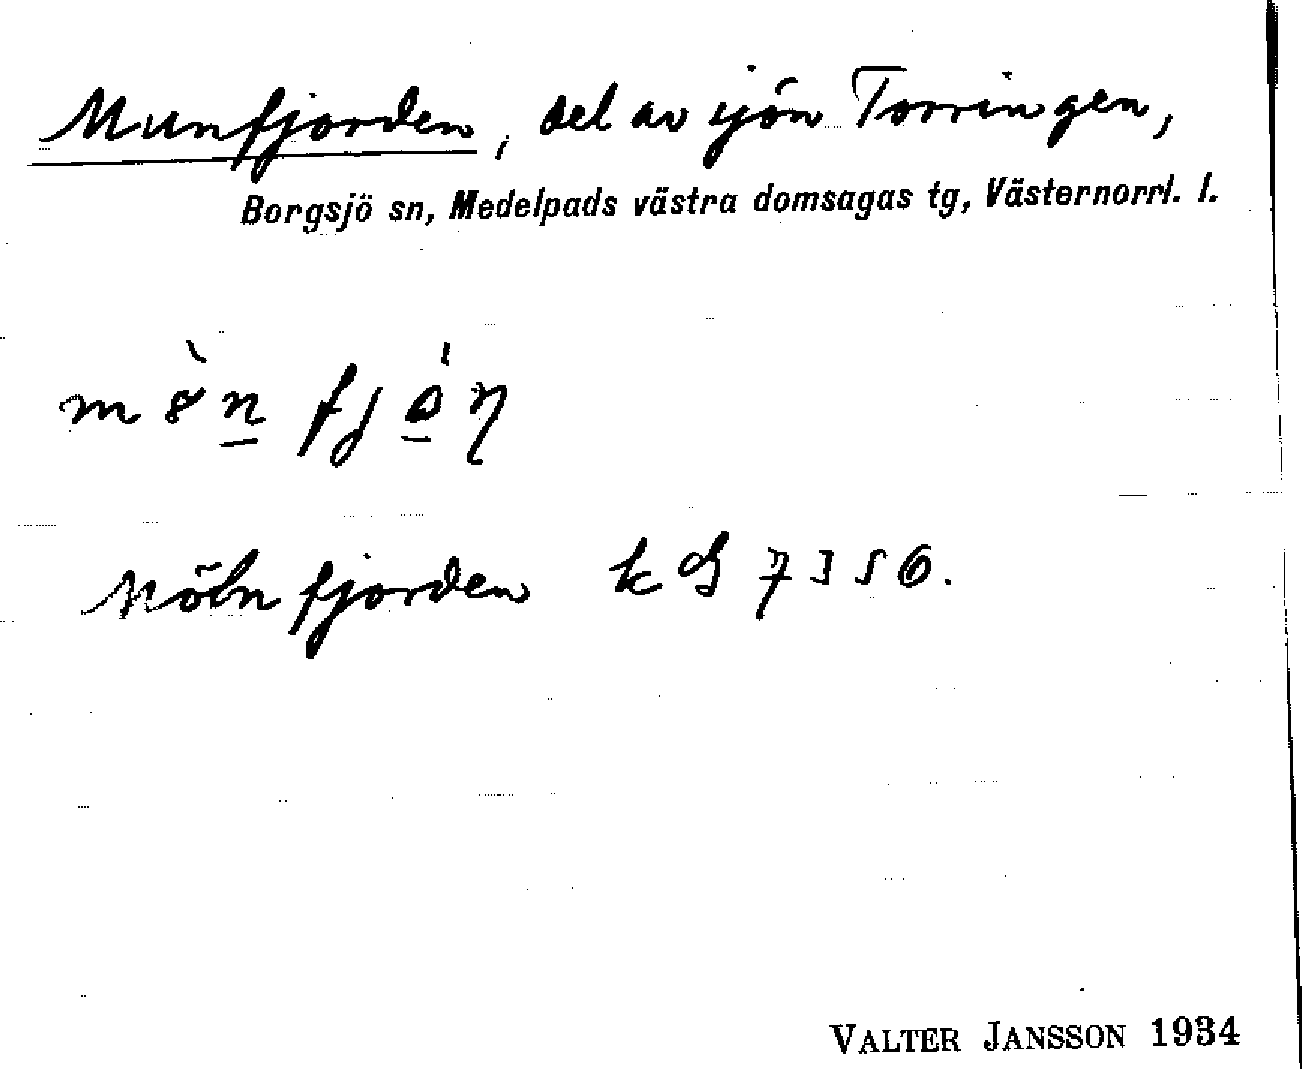 Munfjorden, del av sjön Torringen,
Borgsjö sn, Medelpads västra domsagas tg, Västernorrl. l.
Mölnfjorden
VALTER JANSSON 1934